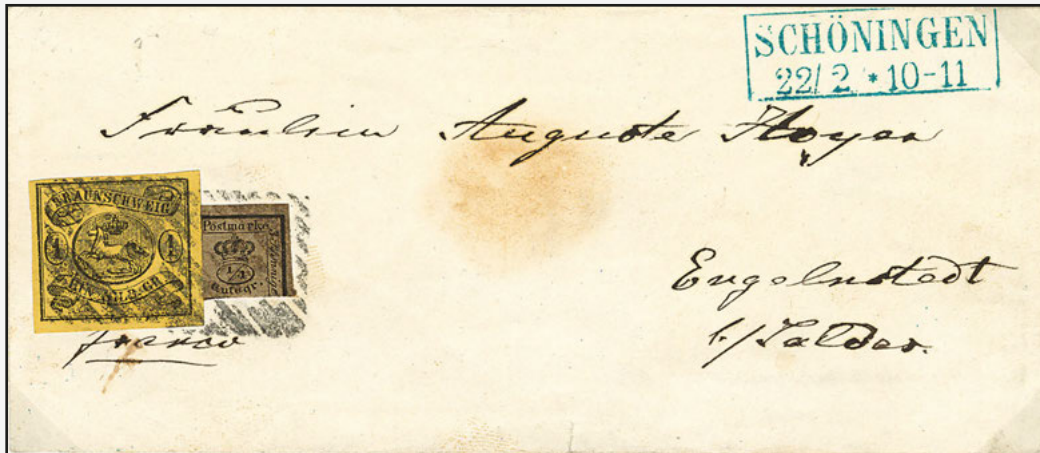 SCHÖNINGEN
22/2 * 10-11
Fräulein Auguste Hoyer
BRAUNSCHWEIG
1 1
EIN SILB. GR.
Postmarke
1/4
Gutegr.
franco
Engelnstedt
b/Salder.